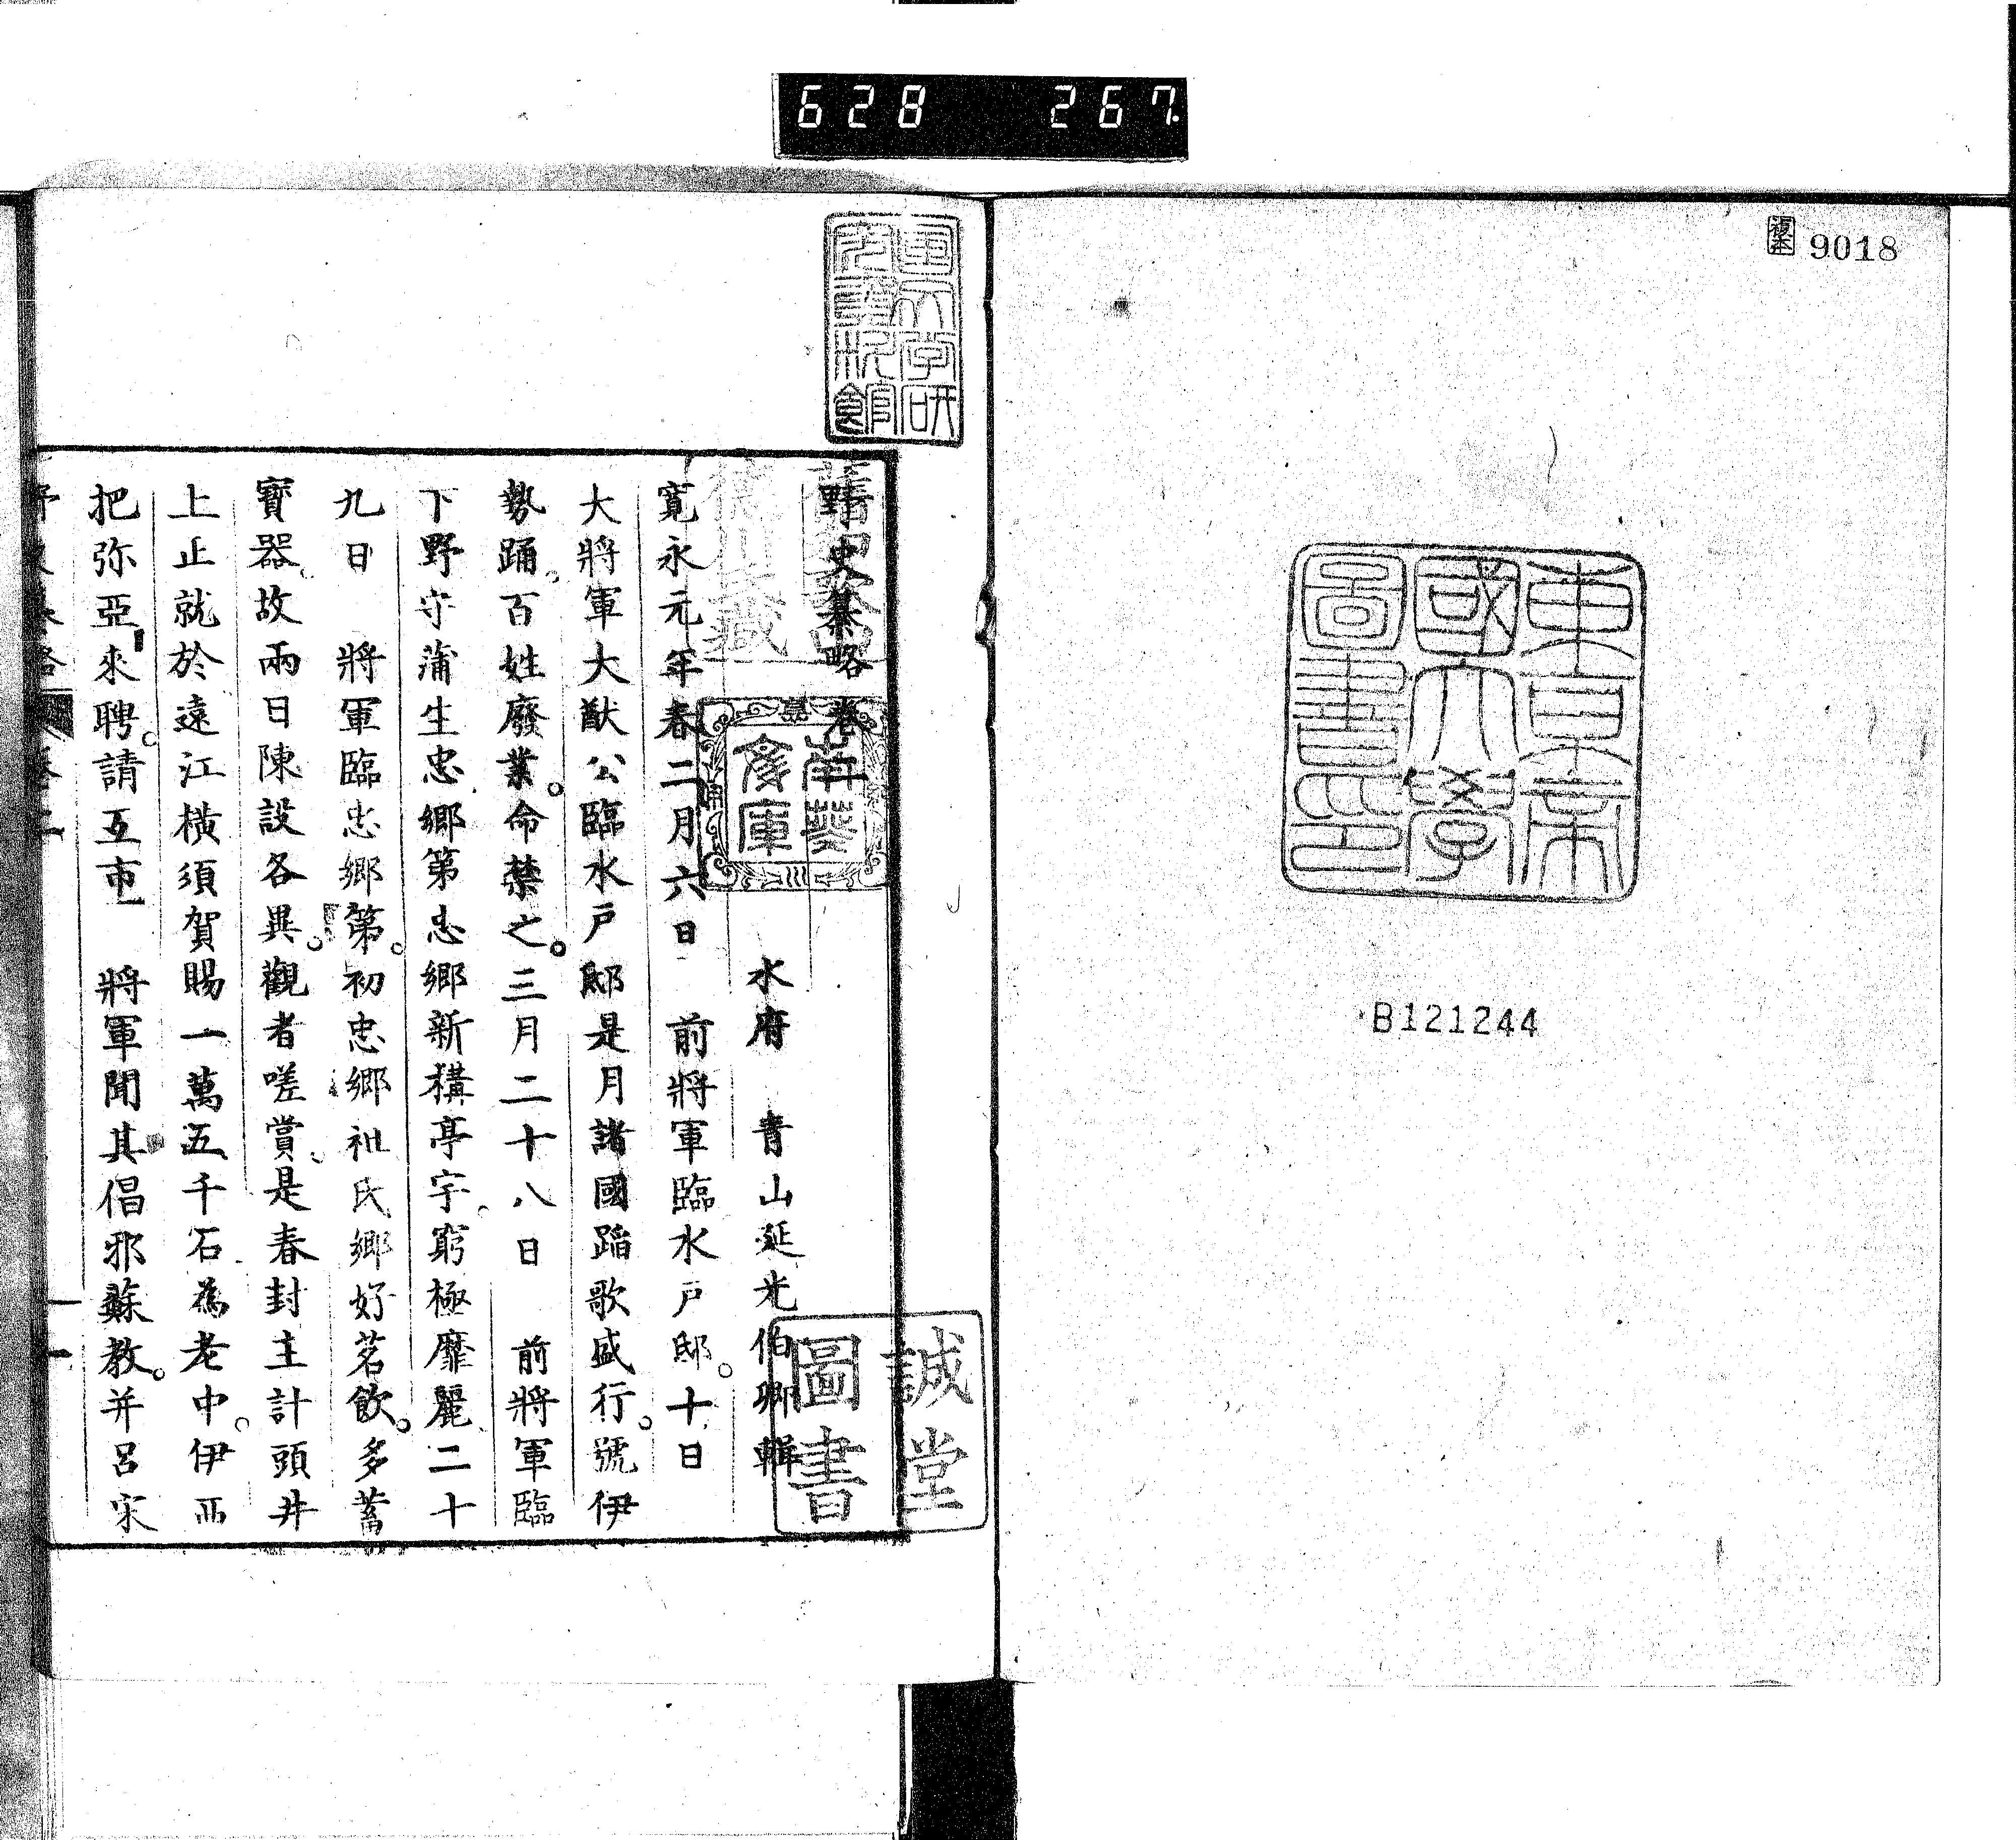 628 267.
複本 9018
東京帝
國大學
圖書印
B121244
誠堂
圖書
南葵
文庫
野史纂略卷
水府 青山延光伯卿輯
寛永元年春二月六日 前將軍臨水戸邸。十日
大將軍大猷公臨水戸邸是月諸國蹈歌盛行。號伊
勢踊。百姓廢業。命禁之。三月二十八日 前將軍臨
下野守蒲生忠郷第忠郷新構亭宇、窮極靡麗二十
九日 將軍臨忠郷第。初忠郷祖氏郷好茗飲。多蓄
寶器、故兩日陳設各異。觀者嗟賞、是春封主計頭井
上正就於遠江横須賀賜一萬五千石為老中。伊西
把弥亞來聘。請互市 將軍聞其倡邪蘇教。并呂宋